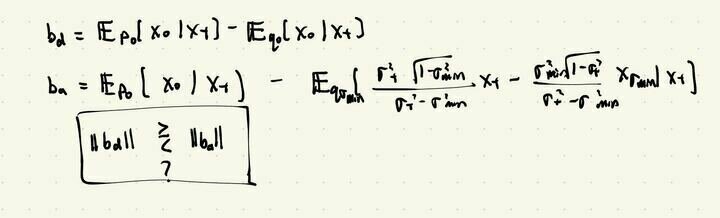 b_d = 𝔼_{p_0}[ x_0 | x_t ] - 𝔼_{q_0}[ x_0 | x_t ]
b_a = 𝔼_{p_0} [ x_0 | x_t ] - 𝔼_{q_{σ_min}}[ \frac{σ_t^2 \sqrt{1-σ_{min}^2}}{σ_t^2 - σ_{min}^2} x_t - \frac{σ_{min}^2 \sqrt{1-σ_t^2}}{σ_t^2 - σ_{min}^2} x_{σ_min} | x_t ]
||b_d|| ≷ ||b_a||
?